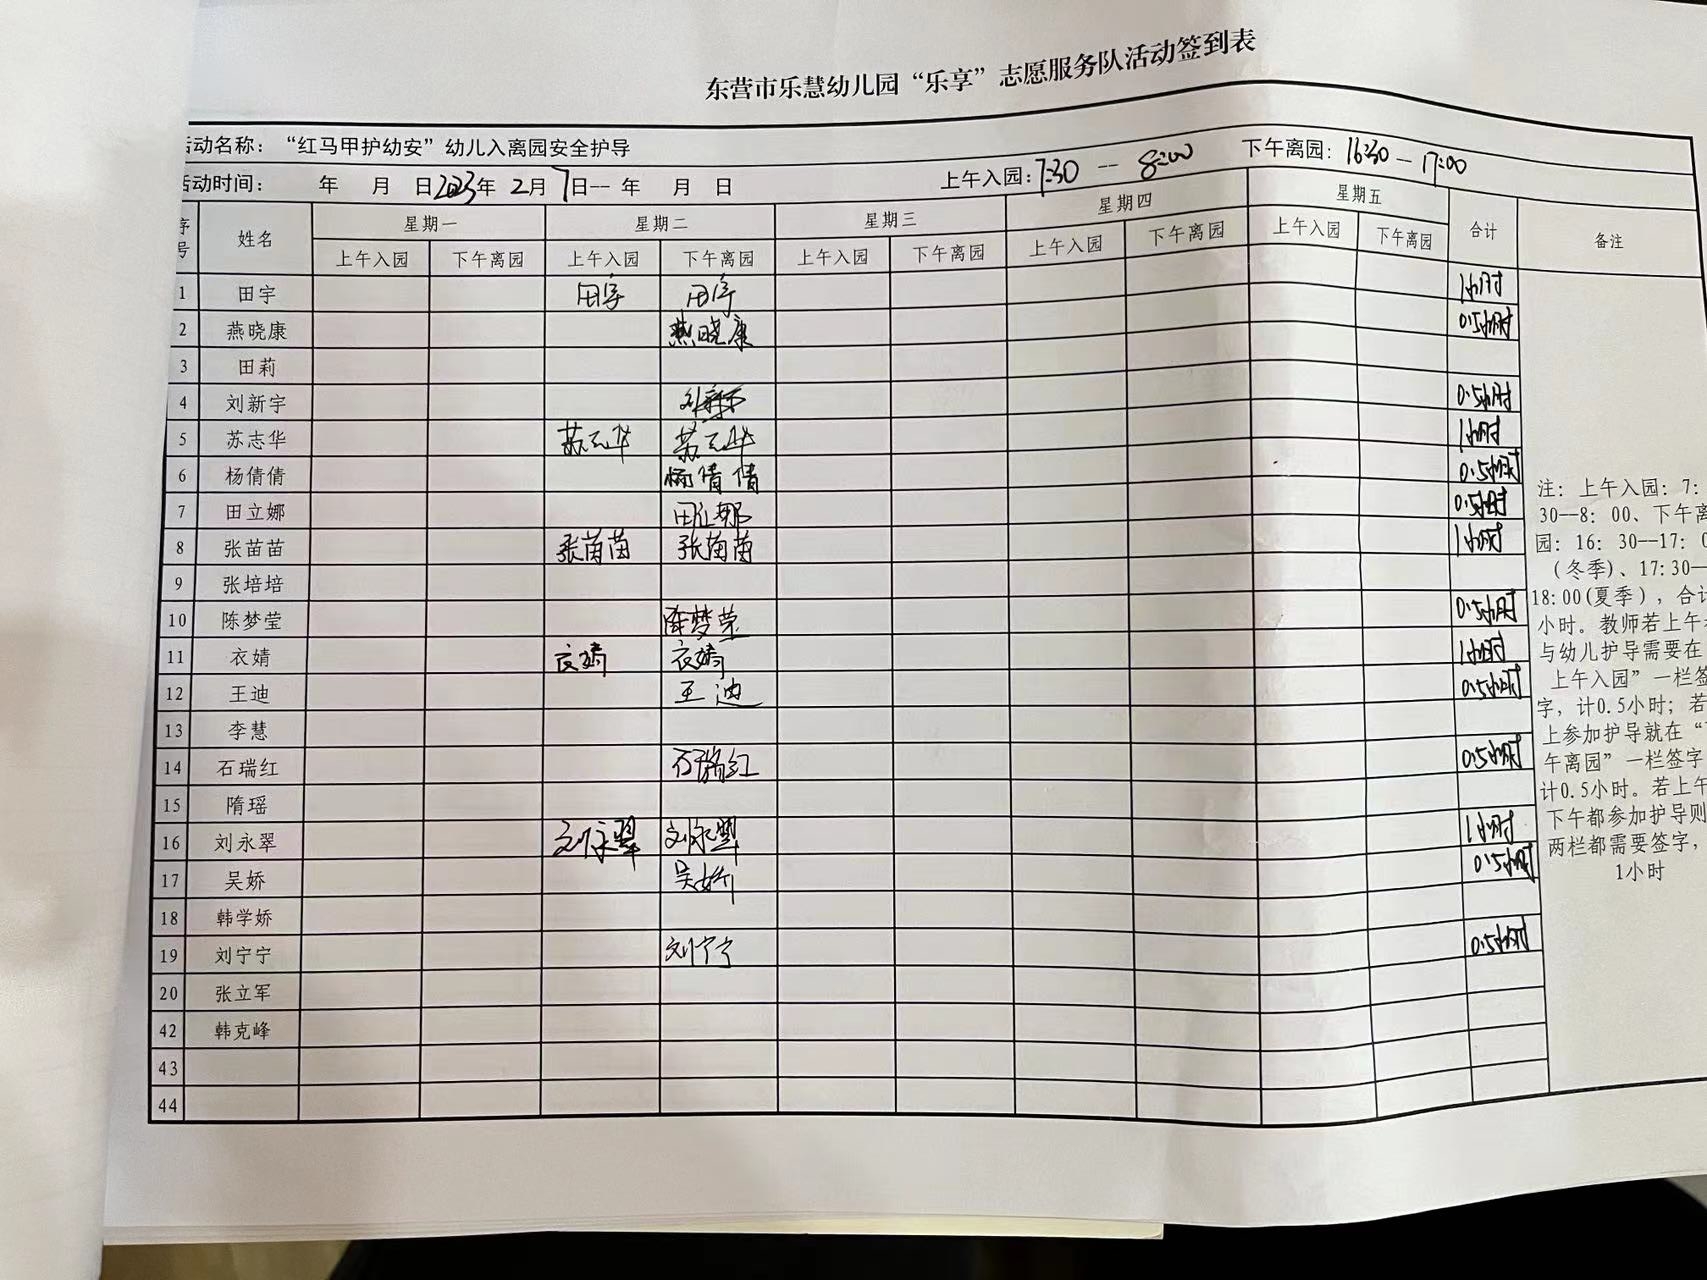 东营市乐慧幼儿园“乐享”志愿服务队活动签到表
活动名称：“红马甲护幼安”幼儿入离园安全护导
活动时间： 年 月 日2023年 2月 7日-- 年 月 日 上午入园:7:30 -- 8:00 下午离园:16:30 -- 17:00
序号 姓名 星期一 星期二 星期三 星期四 星期五 合计 备注
上午入园 下午离园 上午入园 下午离园 上午入园 下午离园 上午入园 下午离园 上午入园 下午离园
1 田宇 田宇 田宇 1小时
2 燕晓康 燕晓康 0.5小时
3 田莉
4 刘新宇 刘新宇 0.5小时
5 苏志华 苏志华 苏志华 1小时
6 杨倩倩 杨倩倩 0.5小时
7 田立娜 田立娜 0.5小时
8 张苗苗 张苗苗 张苗苗 1小时
9 张培培
10 陈梦莹 陈梦莹 0.5小时
11 衣婧 衣婧 衣婧 1小时
12 王迪 王迪 0.5小时
13 李慧
14 石瑞红 石瑞红 0.5小时
15 隋瑶
16 刘永翠 刘永翠 刘永翠 1小时
17 吴娇 吴娇 0.5小时
18 韩学娇
19 刘宁宁 刘宁宁 0.5小时
20 张立军
42 韩克峰
43
44
注：上午入园：7：
30--8：00、下午离
园：16：30--17：0
(冬季)、17:30--
18:00(夏季)，合计
小时。教师若上午
与幼儿护导需要在
上午入园”一栏签
字，计0.5小时；若
上参加护导就在“
午离园”一栏签字
计0.5小时。若上午
下午都参加护导则
两栏都需要签字，
1小时